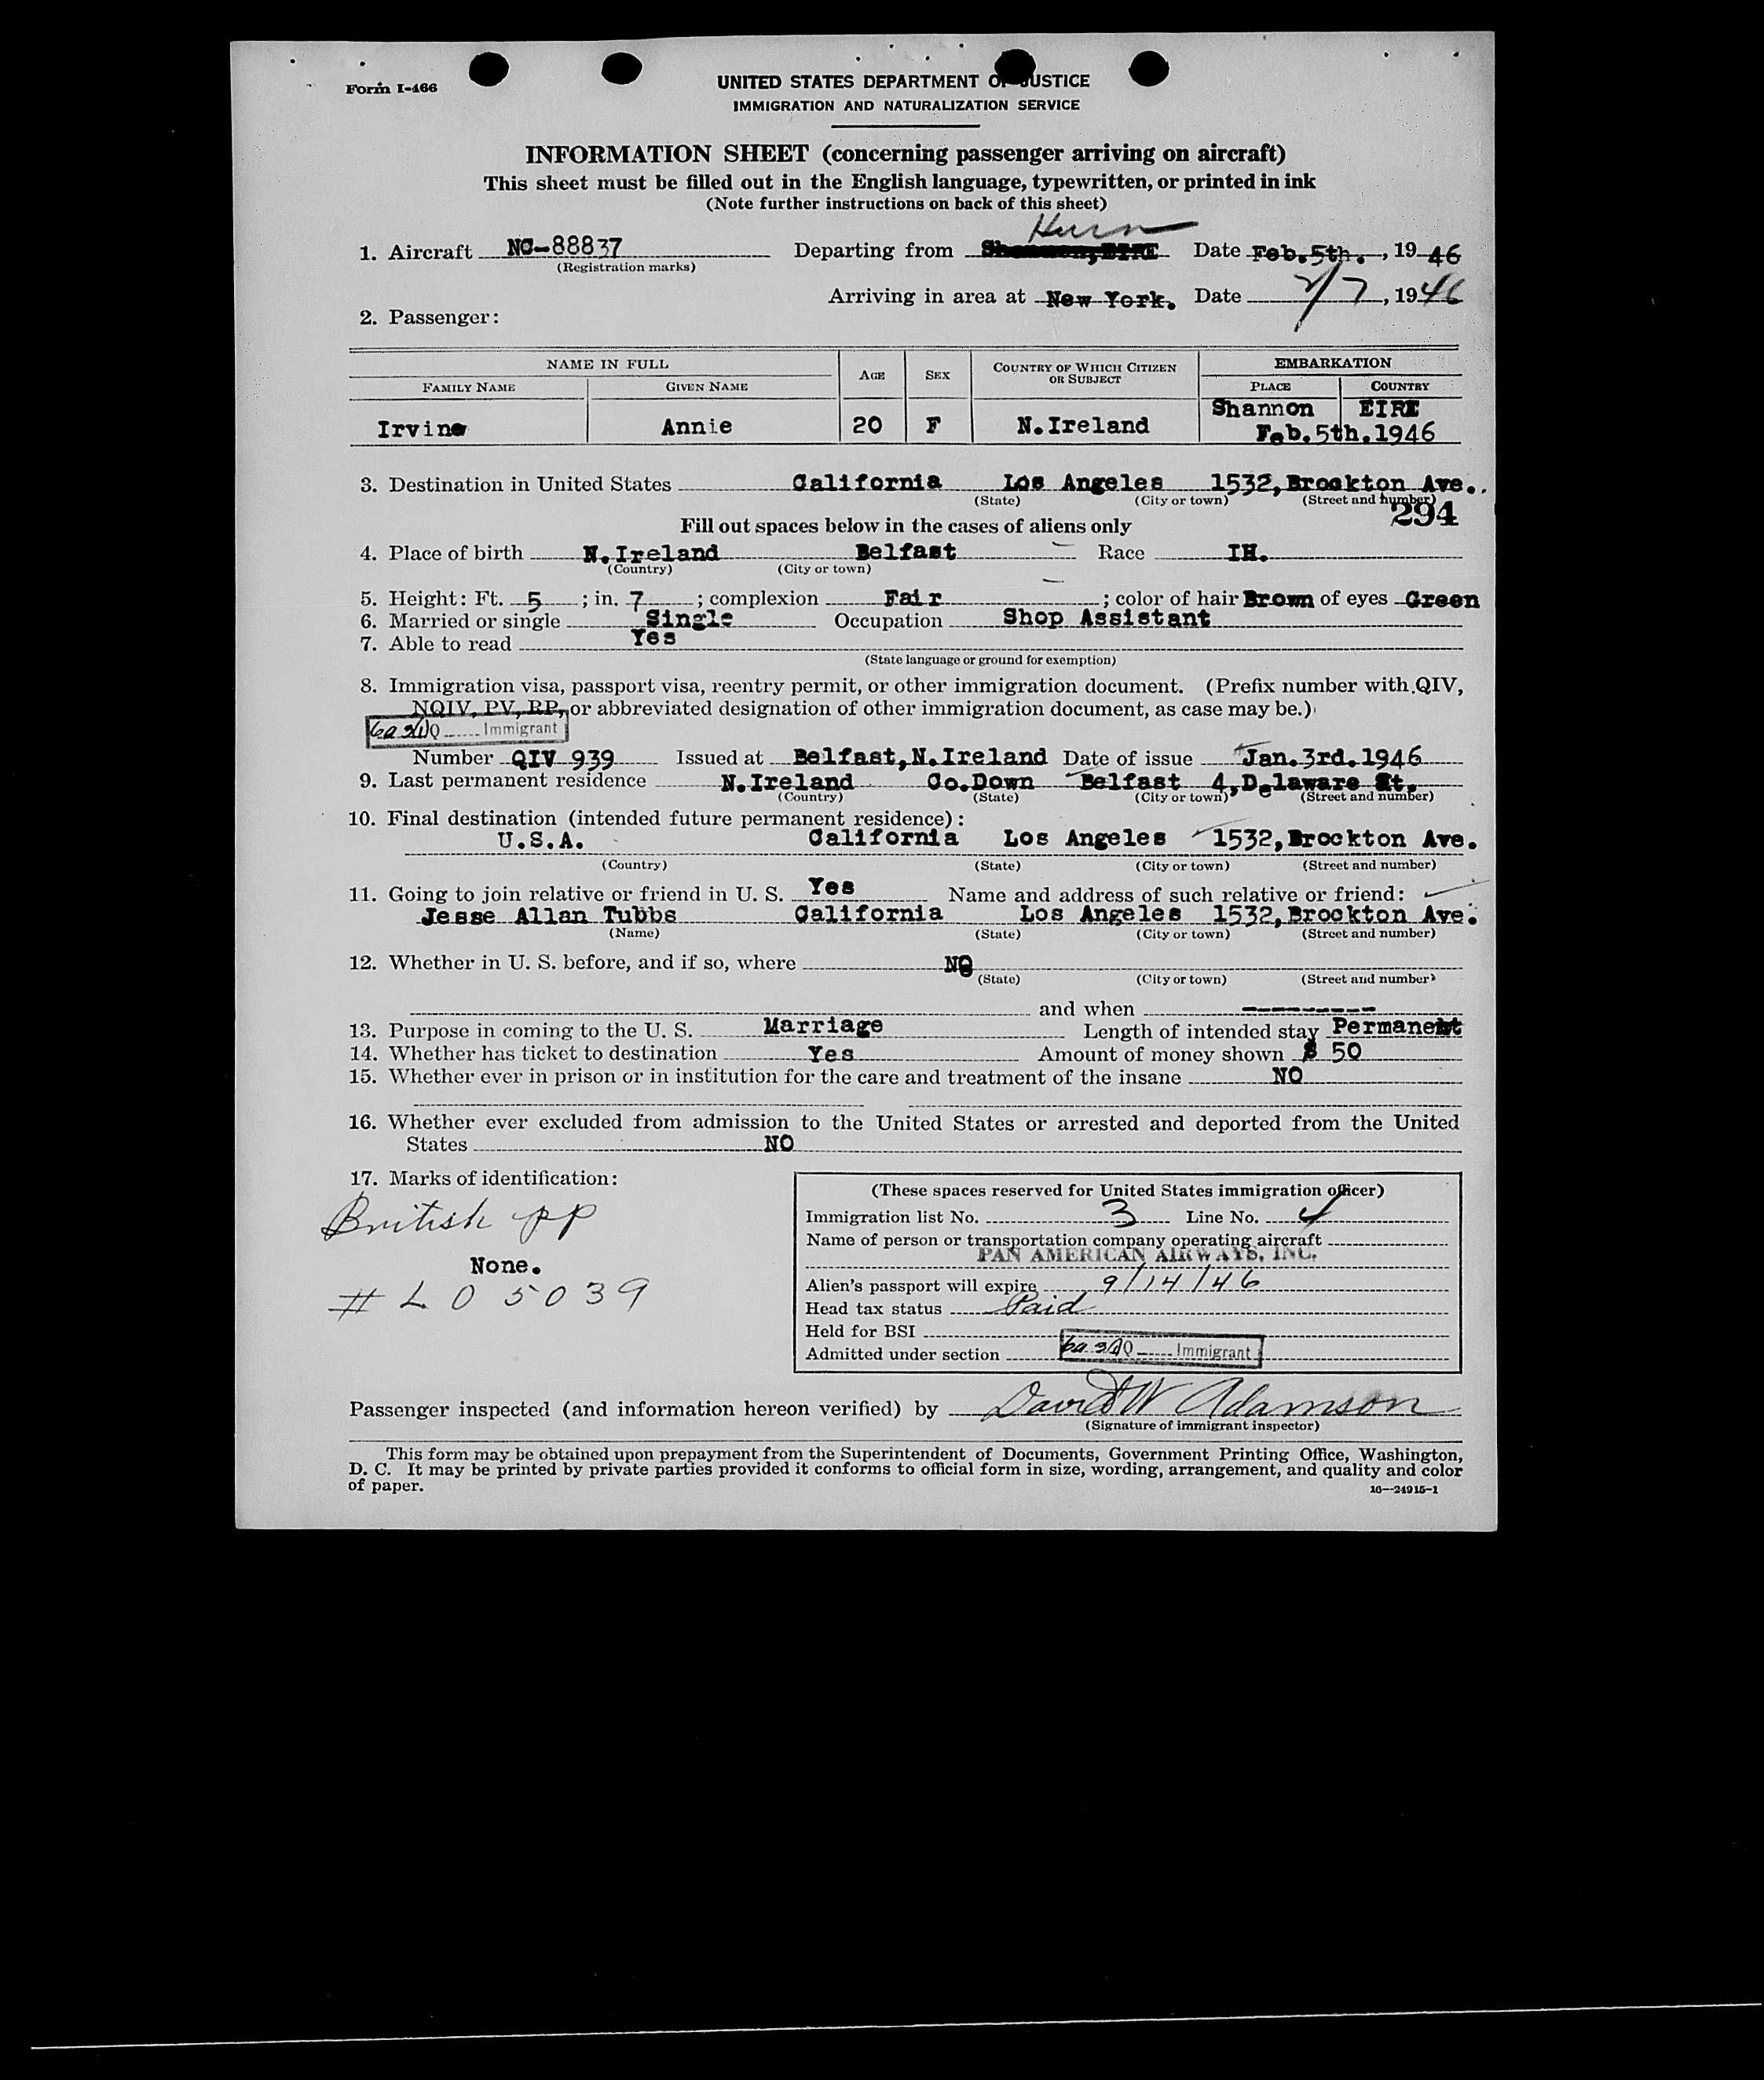 Form I-466
UNITED STATES DEPARTMENT OF JUSTICE
IMMIGRATION AND NATURALIZATION SERVICE
INFORMATION SHEET (concerning passenger arriving on aircraft)
This sheet must be filled out in the English language, typewritten, or printed in ink
(Note further instructions on back of this sheet)
Hurn
1. Aircraft NC-88837 Departing from Shannon, EIRE Date Feb. 5th., 1946
(Registration marks)
Arriving in area at New York. Date 2/7, 1946
2. Passenger:
NAME IN FULL AGE SEX COUNTRY OF WHICH CITIZEN OR SUBJECT EMBARKATION
FAMILY NAME GIVEN NAME PLACE COUNTRY
Shannon EIRE
Irvine Annie 20 F N.Ireland Feb.5th.1946
3. Destination in United States California Los Angeles 1532, Brockton Ave.
(State) (City or town) (Street and number)
294
Fill out spaces below in the cases of aliens only
4. Place of birth N.Ireland Belfast Race IH.
(Country) (City or town)
5. Height: Ft. 5; in. 7; complexion Fair; color of hair Brown of eyes Green
6. Married or single Single Occupation Shop Assistant
7. Able to read Yes
(State language or ground for exemption)
8. Immigration visa, passport visa, reentry permit, or other immigration document. (Prefix number with QIV,
NQIV, PV, RP, or abbreviated designation of other immigration document, as case may be.)
Q Immigrant
Number QIV 939 Issued at Belfast, N.Ireland Date of issue Jan.3rd.1946
9. Last permanent residence N.Ireland Co.Down Belfast 4, Delaware St.
(Country) (State) (City or town) (Street and number)
10. Final destination (intended future permanent residence):
U.S.A. California Los Angeles 1532, Brockton Ave.
(Country) (State) (City or town) (Street and number)
11. Going to join relative or friend in U. S. Yes Name and address of such relative or friend:
Jesse Allan Tubbs California Los Angeles 1532, Brockton Ave.
(Name) (State) (City or town) (Street and number)
12. Whether in U. S. before, and if so, where NO
(State) (City or town) (Street and number)
and when ---------
13. Purpose in coming to the U. S. Marriage Length of intended stay Permanent
14. Whether has ticket to destination Yes Amount of money shown $ 50
15. Whether ever in prison or in institution for the care and treatment of the insane NO
16. Whether ever excluded from admission to the United States or arrested and deported from the United
States NO
17. Marks of identification:
British pp
None.
# L 05039
(These spaces reserved for United States immigration officer)
Immigration list No. 3 Line No. 4
Name of person or transportation company operating aircraft
PAN AMERICAN AIRWAYS, INC.
Alien's passport will expire 9/14/46
Head tax status Paid
Held for BSI
Admitted under section Q Immigrant
Passenger inspected (and information hereon verified) by David W Adamson
(Signature of immigrant inspector)
This form may be obtained upon prepayment from the Superintendent of Documents, Government Printing Office, Washington,
D. C. It may be printed by private parties provided it conforms to official form in size, wording, arrangement, and quality and color
of paper.
16—24915-1